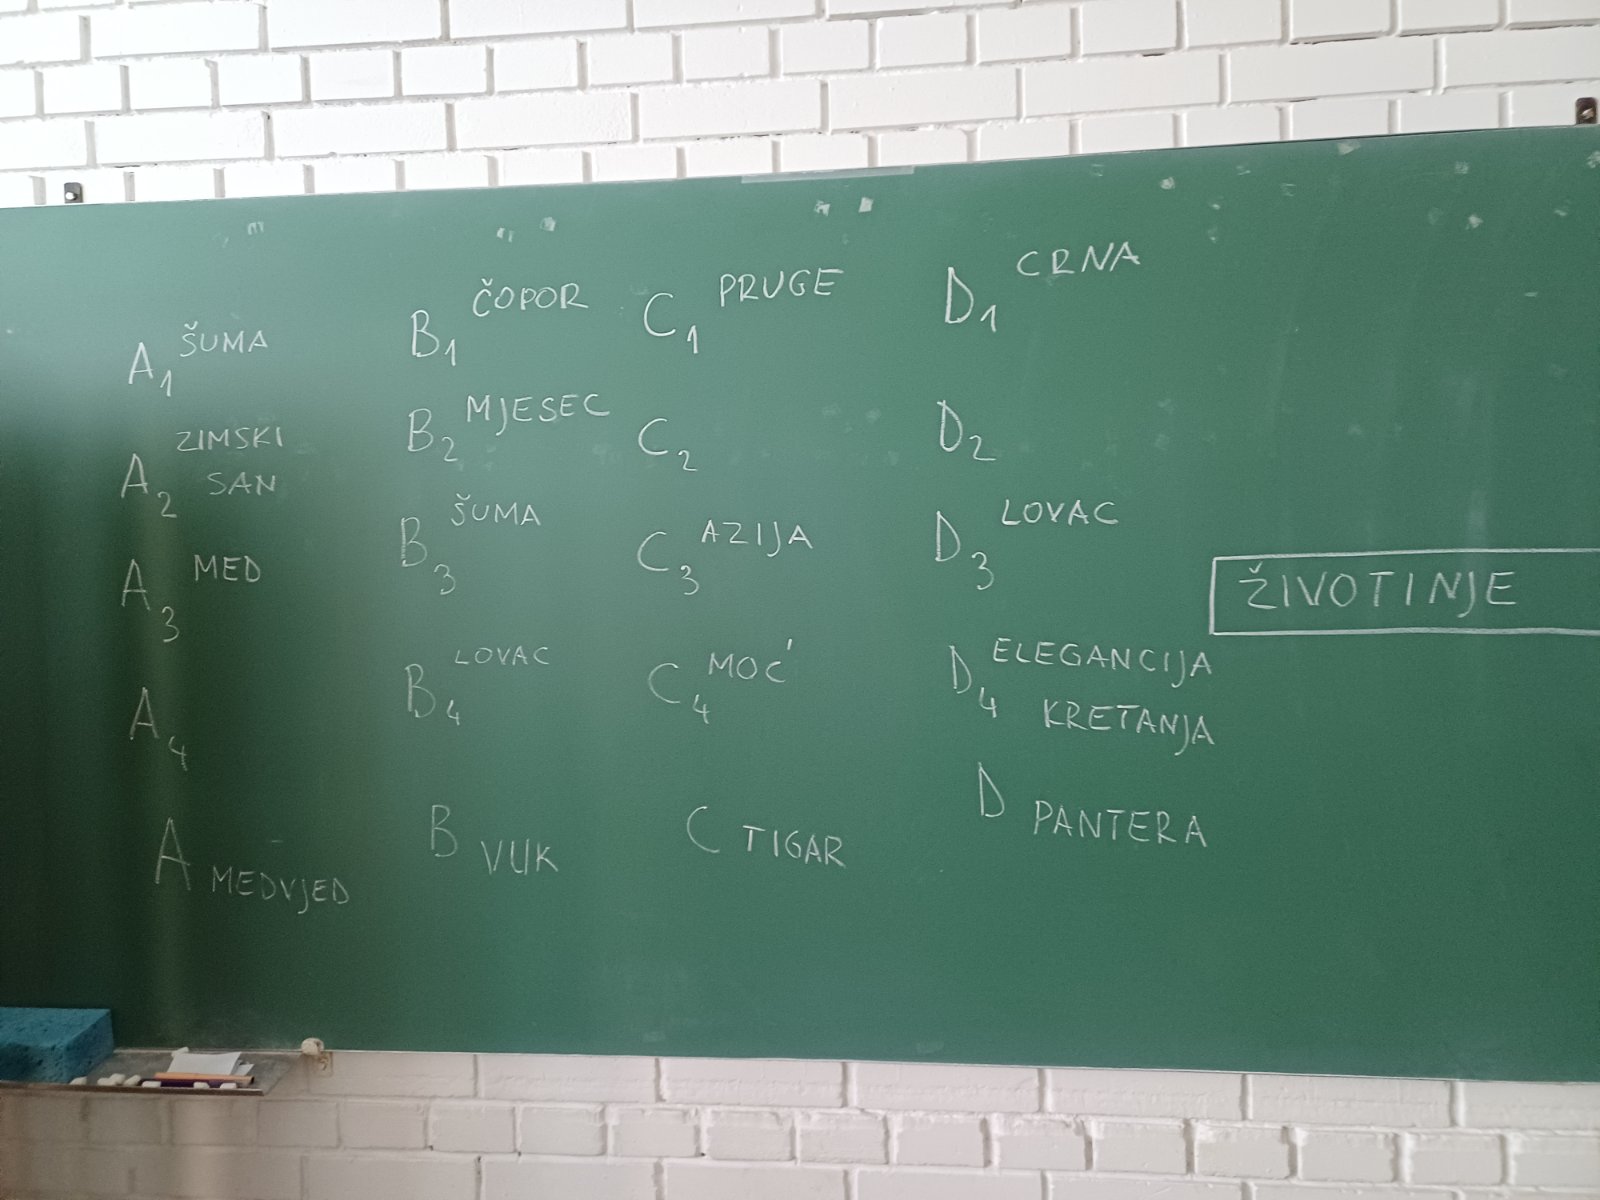 A1 ŠUMA
A2 ZIMSKI
SAN
A3 MED
A4
A MEDVJED
B1 ČOPOR
B2 MJESEC
B3 ŠUMA
B4 LOVAC
B VUK
C1 PRUGE
C2
C3 AZIJA
C4 MOĆ
C TIGAR
D1 CRNA
D2
D3 LOVAC
D4 ELEGANCIJA
KRETANJA
D PANTERA
ŽIVOTINJE